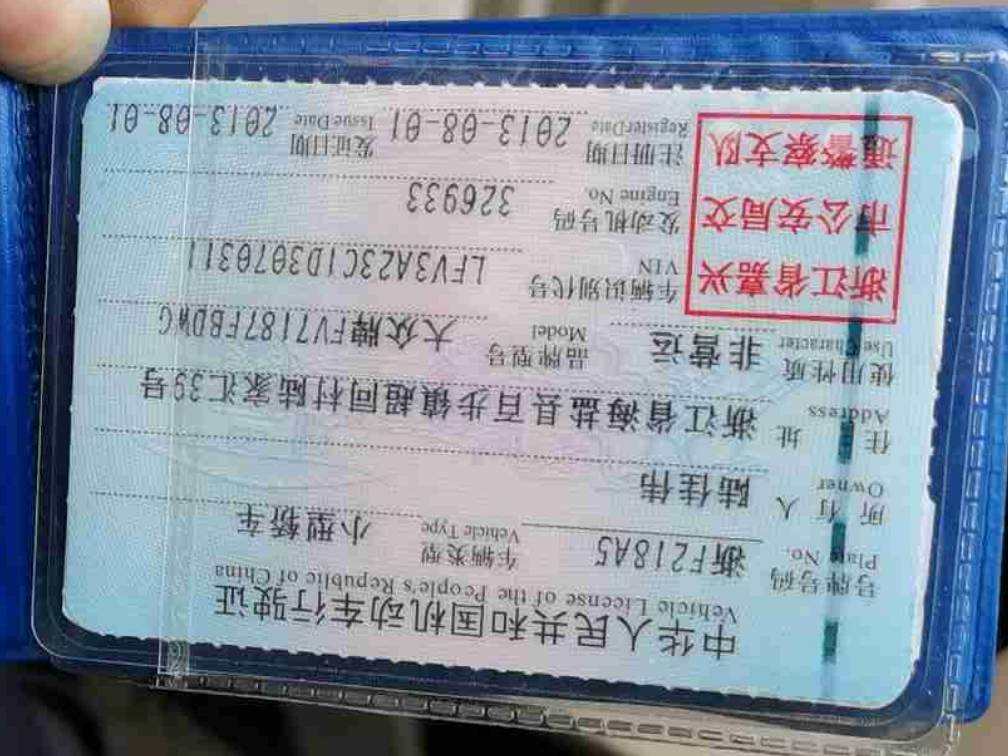 中华人民共和国机动车行驶证
Vehicle License of the People's Republic of China
号牌号码 浙F218A5 车辆类型 小型轿车
Plate No. Vehicle Type
所有人 陆佳伟
Owner
住址 浙江省海盐县百步镇超同村陆家汇39号
Address
使用性质 非营运 品牌型号 大众牌FV7187FBDWG
Use Character Model
浙江省嘉兴
市公安局交
通警察支队
车辆识别代号 LFV3A23C1D3070311
VIN
发动机号码 326933
Engine No.
注册日期 2013-08-01 发证日期 2013-08-01
Register Date Issue Date